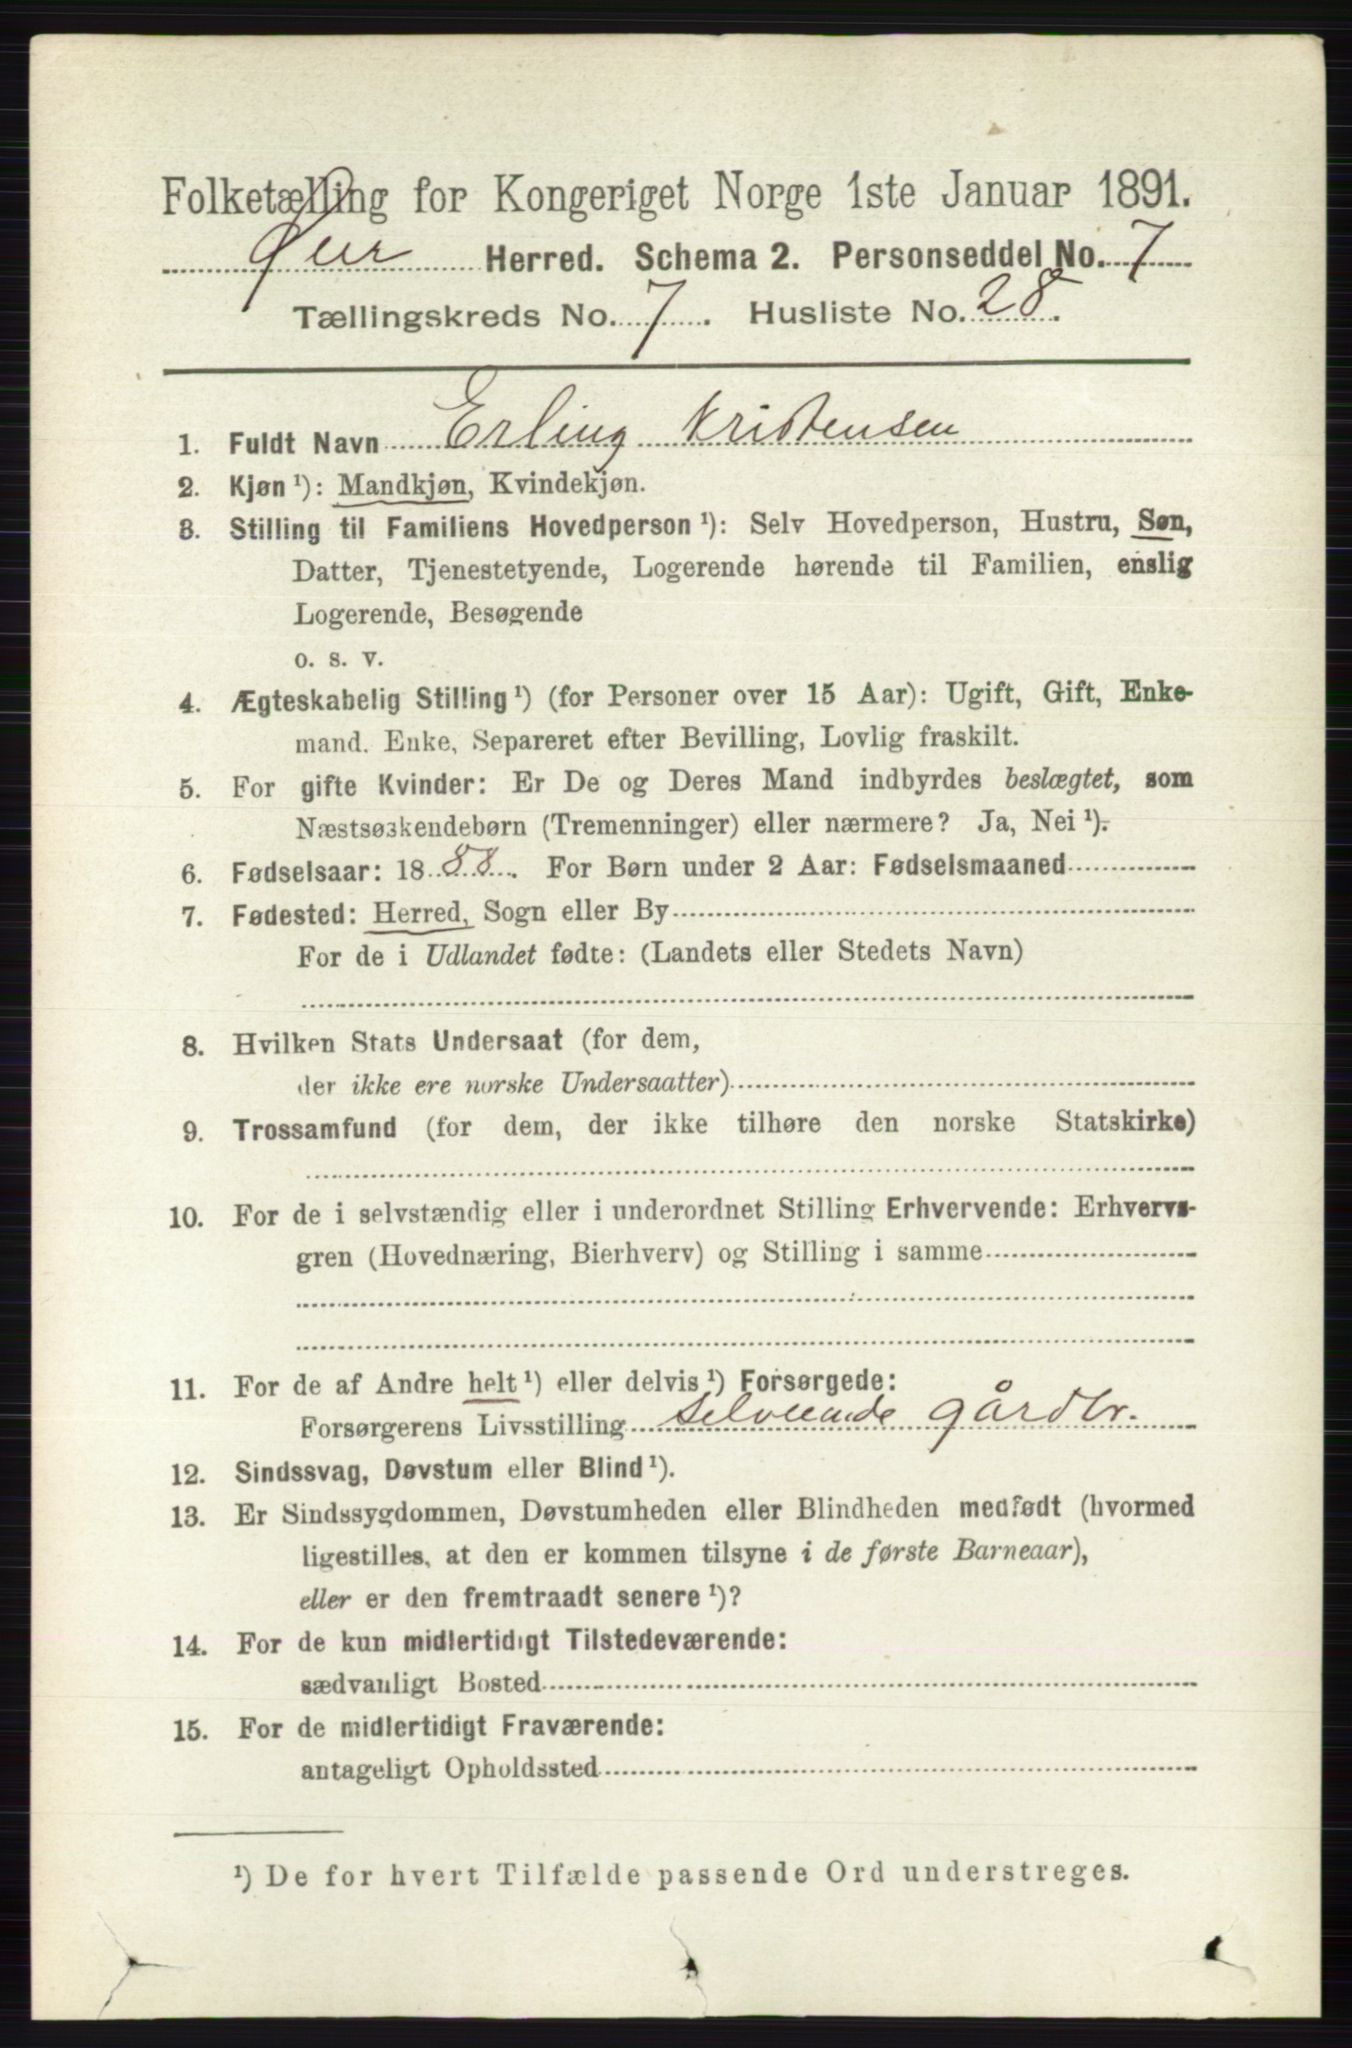 Folketælling for Kongeriget Norge 1ste Januar 1891.
Øier Herred. Schema 2. Personseddel No. 7
Tællingskreds No. 7. Husliste No. 28.
1. Fuldt Navn Erling Kristensen
2. Kjøn ¹): Mandkjøn, Kvindekjøn.
3. Stilling til Familiens Hovedperson ¹): Selv Hovedperson, Hustru, Søn,
Datter, Tjenestetyende, Logerende hørende til Familien, enslig
Logerende, Besøgende
o. s. v.
4. Ægteskabelig Stilling ¹) (for Personer over 15 Aar): Ugift, Gift, Enke-
mand, Enke, Separeret efter Bevilling, Lovlig fraskilt.
5. For gifte Kvinder: Er De og Deres Mand indbyrdes beslægtet, som
Næstsøskendebørn (Tremenninger) eller nærmere? Ja, Nei ¹).
6. Fødselsaar: 1888. For Børn under 2 Aar: Fødselsmaaned
7. Fødested: Herred, Sogn eller By
For de i Udlandet fødte: (Landets eller Stedets Navn)
8. Hvilken Stats Undersaat (for dem,
der ikke ere norske Undersaatter)
9. Trossamfund (for dem, der ikke tilhøre den norske Statskirke)
10. For de i selvstændig eller i underordnet Stilling Erhvervende: Erhvervs-
gren (Hovednæring, Bierhverv) og Stilling i samme
11. For de af Andre helt ¹) eller delvis ¹) Forsørgede:
Forsørgerens Livsstilling selveiende gårdbr.
12. Sindssvag, Døvstum eller Blind ¹).
13. Er Sindssygdommen, Døvstumheden eller Blindheden medfødt (hvormed
ligestilles, at den er kommen tilsyne i de første Barneaar),
eller er den fremtraadt senere ¹)?
14. For de kun midlertidigt Tilstedeværende:
sædvanligt Bosted
15. For de midlertidigt Fraværende:
antageligt Opholdssted
¹) De for hvert Tilfælde passende Ord understreges.